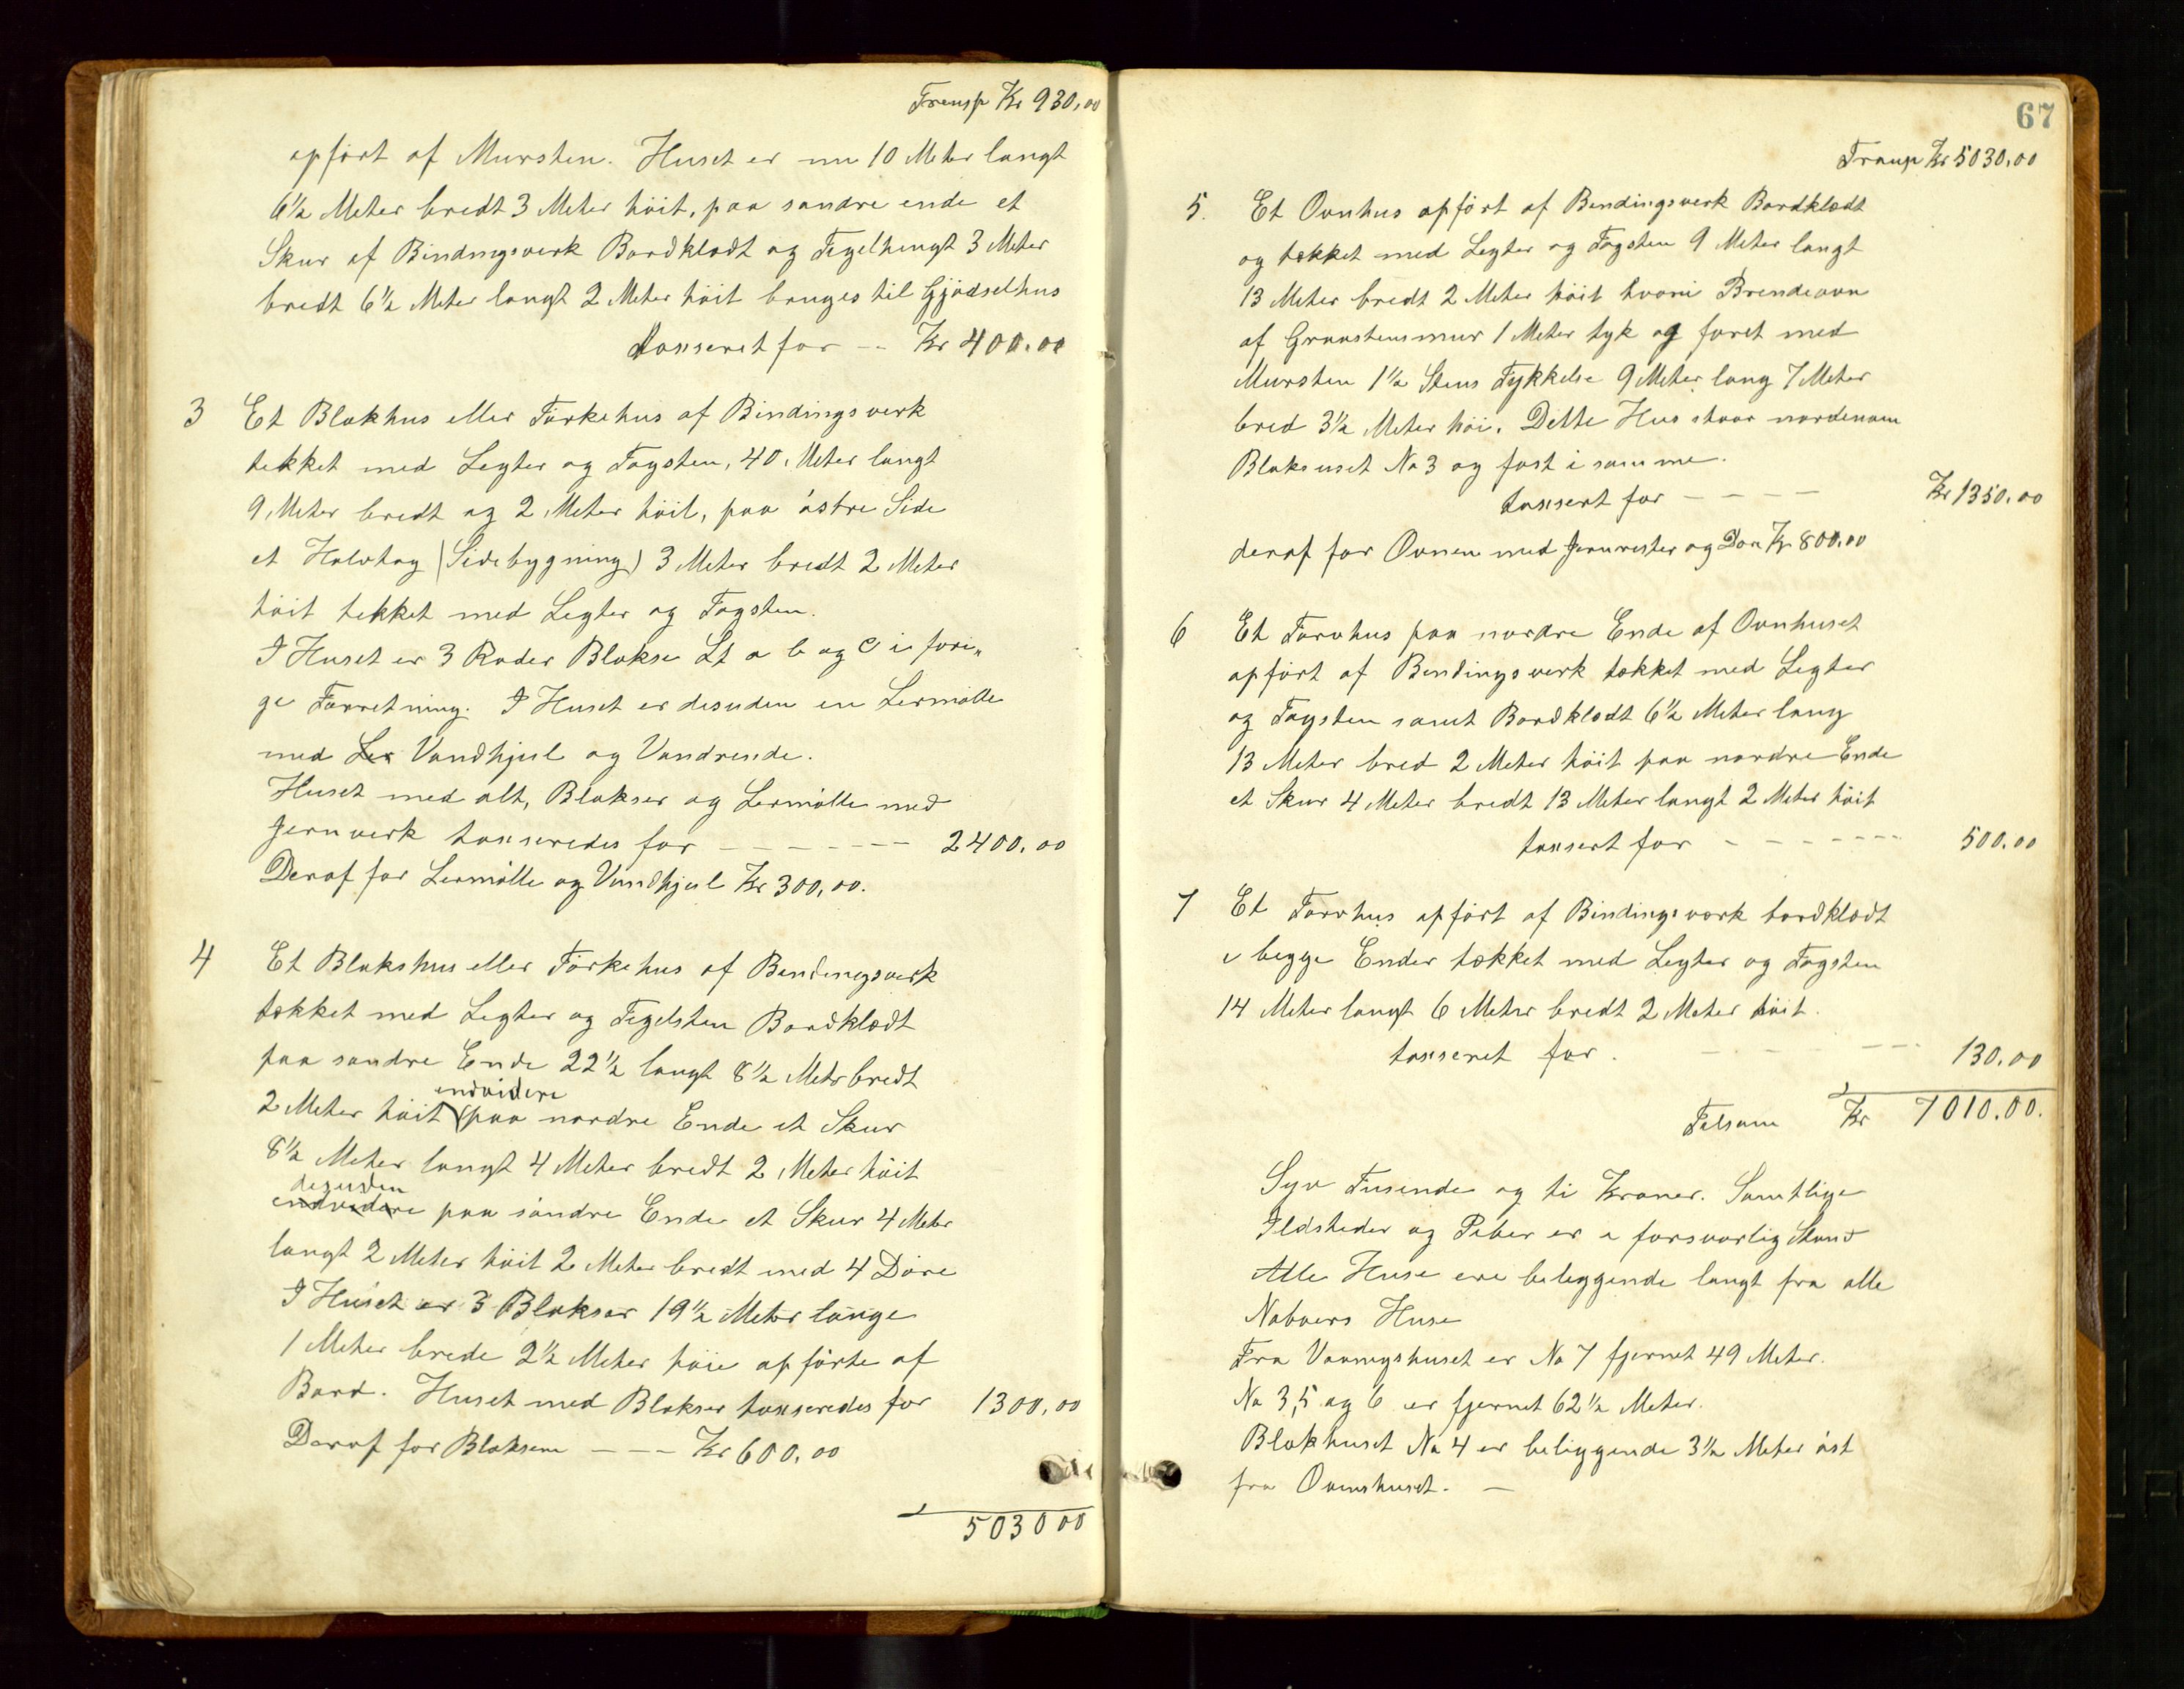 Transp Kr 930,00
opført af Mursten. Huset er nu 10 Meter langt
6½ Meter bredt 3 Meter höit, paa søndre ende et
Skur af Bindingsverk Bordklædt og Tegelhengt 3 Meter
bredt 6½ Meter langt 2 Meter höit bruges til Gjødselhus
taxseret for -- Kr 400.00
3 Et Blokhus eller Törkehus af Bindingsverk
tekket med Legter og Tagsten, 40 Meter langt
9 Meter bredt og 2 Meter höit, paa östre Side
et Halvtag (Sidebygning) 3 Meter bredt 2 Meter
höit tekket med Legter og Tagsten.
I Huset er 3 Rader Blokse Lt a b og c i fori„
ge Forretning. I Huset er desuden en Lermölle
med Ler Vandhjul og Vandrende.
Huset med alt, Blokser og Lermölle med
Jernverk taxseredes for ------- 2400,00
Deraf for Lermölle og Vandhjul Kr 300,00.
4 Et Blokshus eller Törkehus af Bendingsverk
tækket med Legter og Tegelsten Bordklædt
paa søndre Ende 22½ langt 8½ Meter bredt
endvidere
2 Meter höit paa nordre Ende et Skur
8½ Meter langt 4 Meter bredt 2 Meter höit
desuden
endvidere paa söndre Ende et Skur 4 Meter
langt 2 Meter höit 2 Meter bredt med 4 Döre
I Huset er 3 Blokser 19½ Meter lange
1 Meter brede 2½ Meter höie opförte af
Bord. Huset med Blokser taxseredes for 1300,00
Deraf for Bloksene --- Kr 600,00
5030 00
67
Transp Kr 5030,00
5. Et Ovnhus opfört af Bendingsverk Bordklædt
og tækket med Legter og Tagsten 9 Meter langt
13 Meter bredt 2 Meter höit hvori Brendeovn
af Graastensmur 1 Meter tyk og foret med
Mursten 1½ Stens Tykkelse 9 Meter lang 7 Meter
bred 3½ Meter höi. Dette Hus staar nordenom
Bloksuset No 3 og fast i samme.
taxsert for ---- Kr 1350.00
deraf for Ovnen med Jernrister og Dör Kr 800,00
6 Et Torvhus paa nordre Ende af Ovnhuset
opfört af Bendingsverk tækket med Legter
og Tagsten samt Bordklædt 6½ Meter lang
13 Meter bred 2 Meter höit paa nordre Ende
et Skur 4 Meter bredt 13 Meter langt 2 Meter höit
taxsert for ------ 500.00
7 Et Torvhus opfört af Bindingsverk bordklædt
i begge Ender tækket med Legter og Tagsten
14 Meter langt 6 Meter bredt 2 Meter höit.
taxseret for. ---- 130.00
Tilsam Kr 7010.00.
Syv Tusende og ti Kroner. Samtlige
Ildsteder og Piber er i forsvarlig Stand
Alle Huse ere beleggende langt fra alle
Naboers Huse
Fra Vaaningshuset er No 7 fjernet 49 Meter.
No 3, 5 og 6 er fjernet 62½ Meter.
Blokhuset No 4 er beliggende 3½ Meter öst
fra Ovnshuset. —